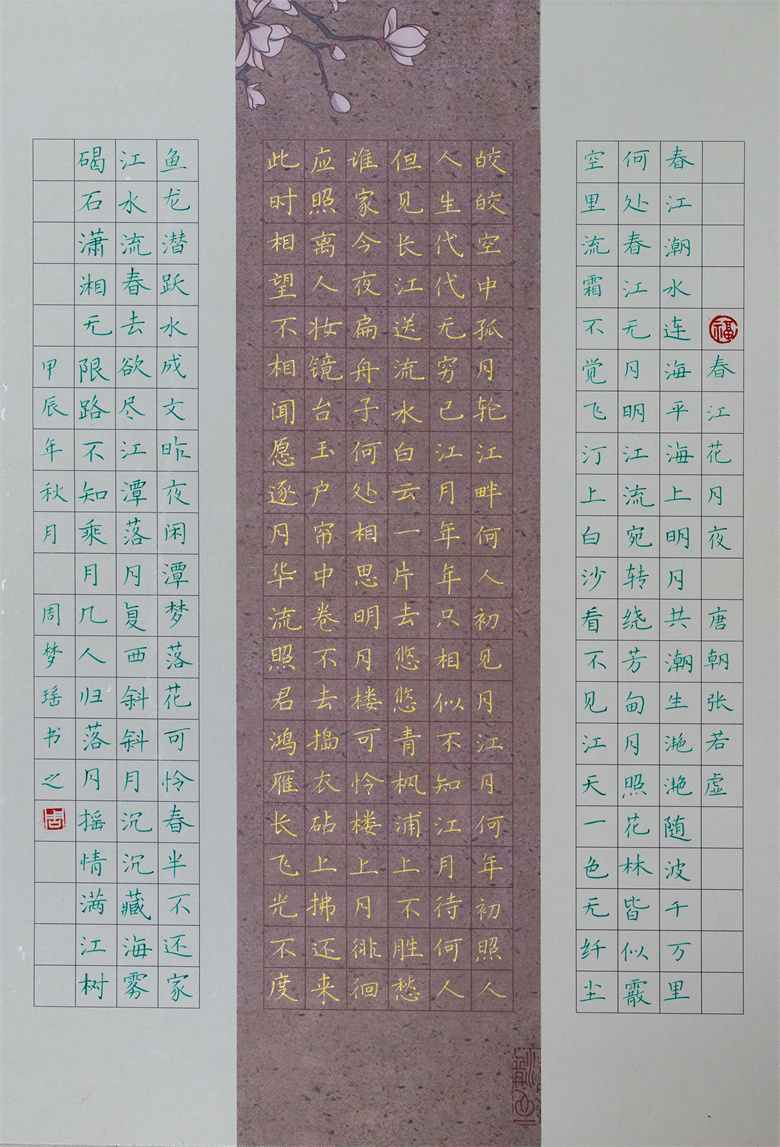 福
春江花月夜 唐朝张若虚
春江潮水连海平海上明月共潮生滟滟随波千万里
何处春江无月明江流宛转绕芳甸月照花林皆似霰
空里流霜不觉飞汀上白沙看不见江天一色无纤尘
皎皎空中孤月轮江畔何人初见月江月何年初照人
人生代代无穷已江月年年只相似不知江月待何人
但见长江送流水白云一片去悠悠青枫浦上不胜愁
谁家今夜扁舟子何处相思明月楼可怜楼上月徘徊
应照离人妆镜台玉户帘中卷不去捣衣砧上拂还来
此时相望不相闻愿逐月华流照君鸿雁长飞光不度
鱼龙潜跃水成文昨夜闲潭梦落花可怜春半不还家
江水流春去欲尽江潭落月复西斜斜月沉沉藏海雾
碣石潇湘无限路不知乘月几人归落月摇情满江树
甲辰年秋月 周梦瑶书之